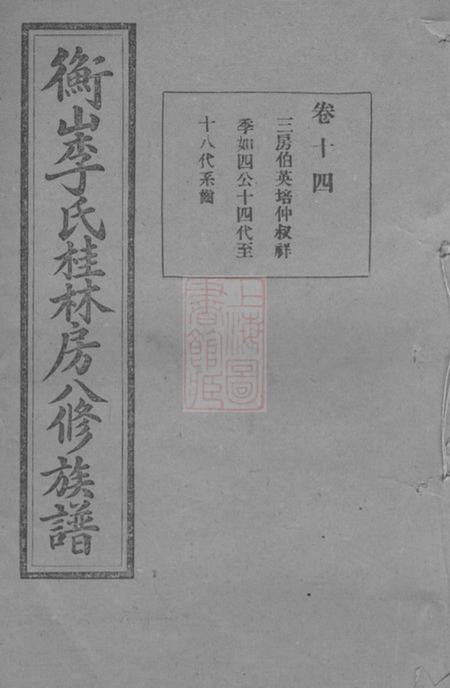 衡山李氏桂林房八修族譜
卷十四
三房伯英培仲叔祥
季如四公十四代至
十八代系齒
上海圖
書館藏